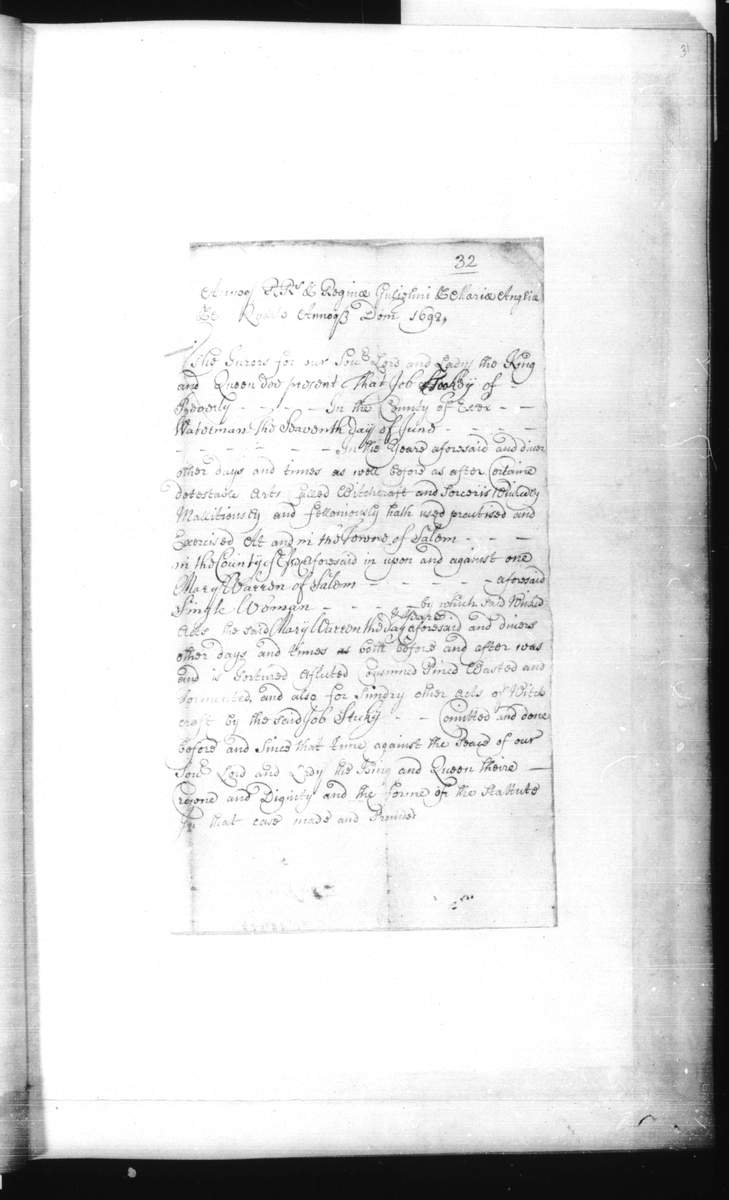 31
32
Annoq RRs & Reginæ Gulielmi & Mariæ Angliæ
&c Quarto Annoqß Dom 1692,
The Jurors for our Soue Lord and Lady the King
and Queen doe present That Job Tookey of -
Beverly - - - - In the County of Essex - -
Waterman the Seaventh Day of June - - - -
- - - - - - In the Yeare aforesaid and divers
other days and times as well before as after Certaine
detestable Arts called Witchcraft and Sorceries Wickedly
Mallitiously and felloniously hath used practised and
Exercised At and in the Towne of Salem - - -
in the County of Essex aforesaid in upon and against one
Mary Warren of Salem - - - - - aforesaid
Single Woman - - - - by which said Wicked
& Yeare
Acts the said Mary Warren the Day aforesaid and divers
other days and times as both before and after was
and is Tortured Aflicted Consumed Pined Wasted and
Tormented, and also for Sundry other Acts of Witch
craft by the said Job Tuky - - Comitted and done
before and since that time against the Peace of our
Soue Lord and Lady the King and Queen theire -
and Dignity and the forme of the Stattute
In that case made and Provided